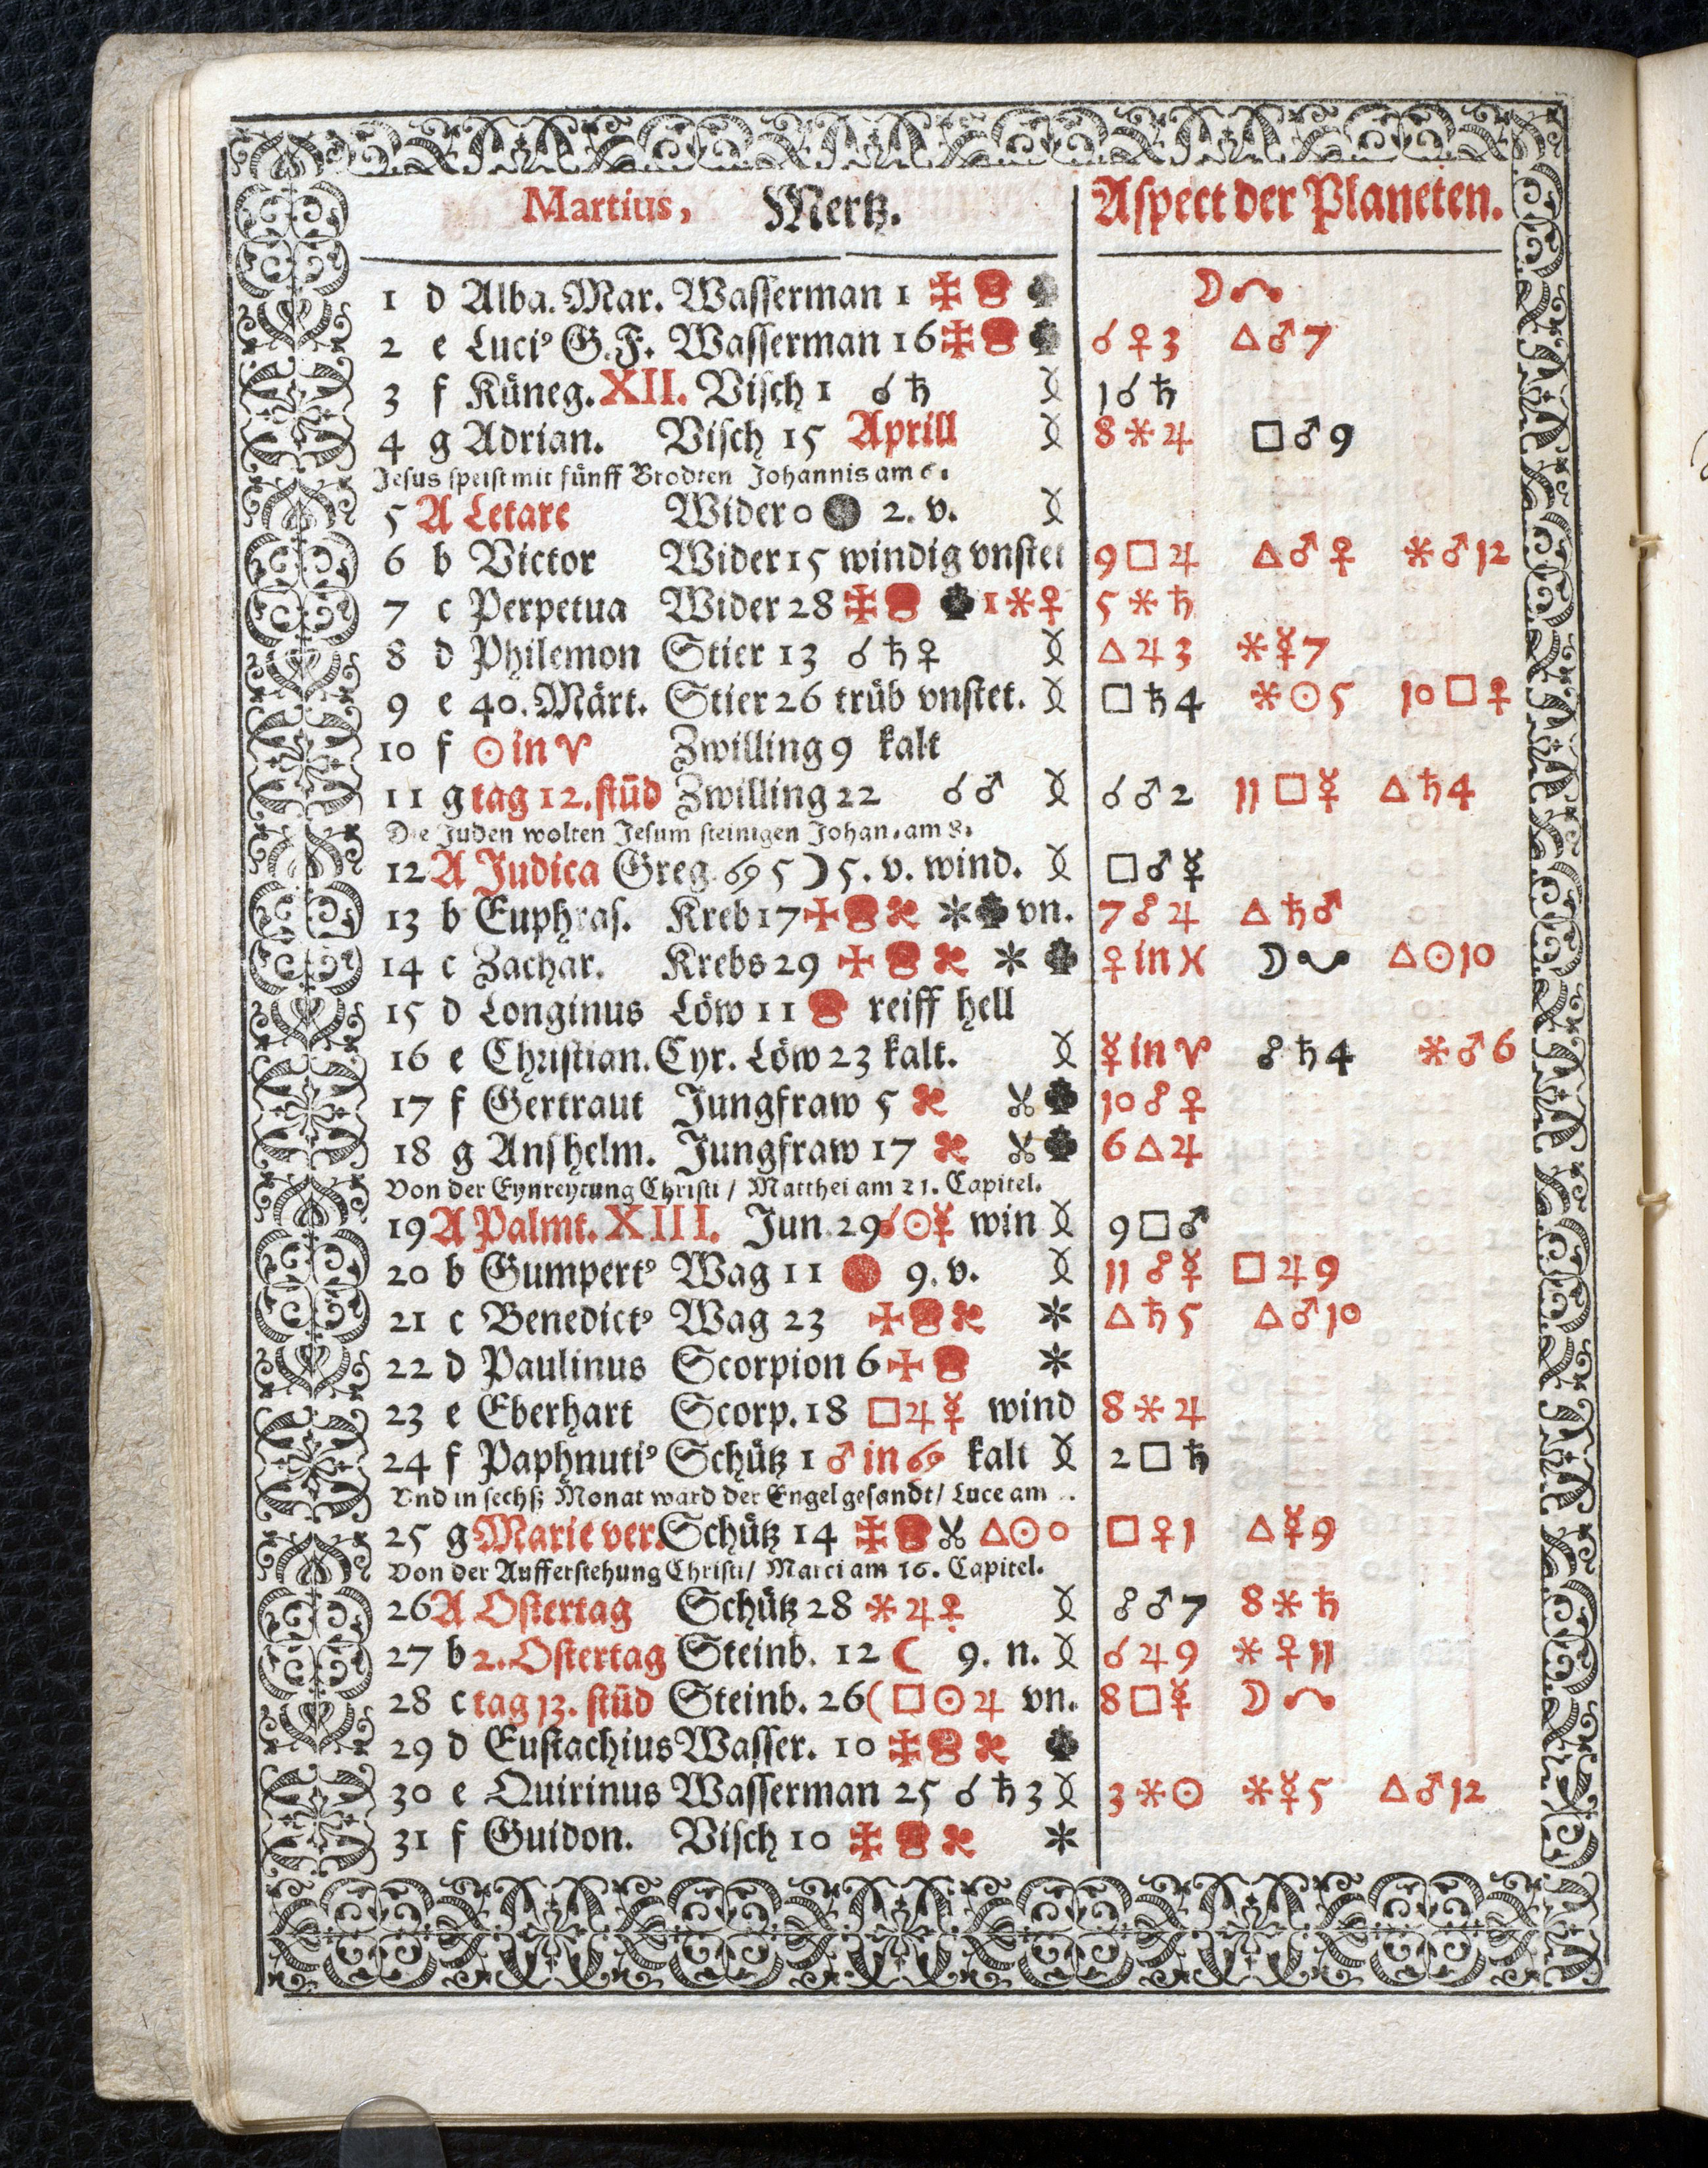 Martius, Mertz. Aspect der Planeten.
1 d Alba. Mar. Wasserman 1 ☽☊
2 e Luci⁹ G. F. Wasserman 16 ☌♀3 △♂7
3 f Küneg. XII. Visch 1 ☌♄ 1☌♄
4 g Adrian. Visch 15 Aprill 8⚹♃ □♂9
Jesus speist mit fünff Brodten Johannis am 6.
5 A Letare Wider 0 ● 2. v.
6 b Victor Wider 15 windig vnstet 9□♃ △♂♀ ⚹♂12
7 c Perpetua Wider 28 1⚹♀ 5⚹♄
8 d Philemon Stier 13 ☌♄♀ △♃3 ⚹☿7
9 e 40. Märt. Stier 26 trüb vnstet. □♄4 ⚹☉5 10□♀
10 f ☉ in ♈ Zwilling 9 kalt
11 g tag 12. stūd Zwilling 22 ☌♂ ☌♂2 11□☿ △♄4
Die Juden wolten Jesum steinigen Johan. am 8.
12 A Judica Greg. ♋ 5 ☽ 5. v. wind. □♂☿
13 b Euphras. Kreb 17 vn. 7☍♃ △♄♂
14 c Zachar. Krebs 29 ♀ in ♓ ☽☋ △☉10
15 d Longinus Löw 11 reiff hell
16 e Christian. Cyr. Löw 23 kalt. ☿ in ♈ ☍♄4 ⚹♂6
17 f Gertraut Jungfraw 5 10☍♀
18 g Anshelm. Jungfraw 17 6△♃
Von der Eynreytung Christi / Matthei am 21. Capitel.
19 A Palmt. XIII. Jun. 29 ☌☉☿ win 9□♂
20 b Gumpert⁹ Wag 11 9. v. 11☍☿ □♃9
21 c Benedict⁹ Wag 23 △♄5 △♂10
22 d Paulinus Scorpion 6
23 e Eberhart Scorp. 18 □♃☿ wind 8⚹♃
24 f Paphnuti⁹ Schütz 1 ♂ in ♋ kalt 2□♄
Vnd in sechß Monat ward der Engel gesandt / Luce am
25 g Marie ver. Schütz 14 △☉0 □♀1 △☿9
Von der Aufferstehung Christi / Marci am 16. Capitel.
26 A Ostertag Schütz 28 ⚹♃♀ ☍♂7 8⚹♄
27 b 2. Ostertag Steinb. 12 ☾ 9. n. ☌♃9 ⚹♀11
28 c tag 13. stūd Steinb. 26 (□☉♃ vn. 8□☿ ☽☊
29 d Eustachius Wasser. 10
30 e Quirinus Wasserman 25 ☌♄3 3⚹☉ ⚹☿5 △♂12
31 f Guidon. Visch 10